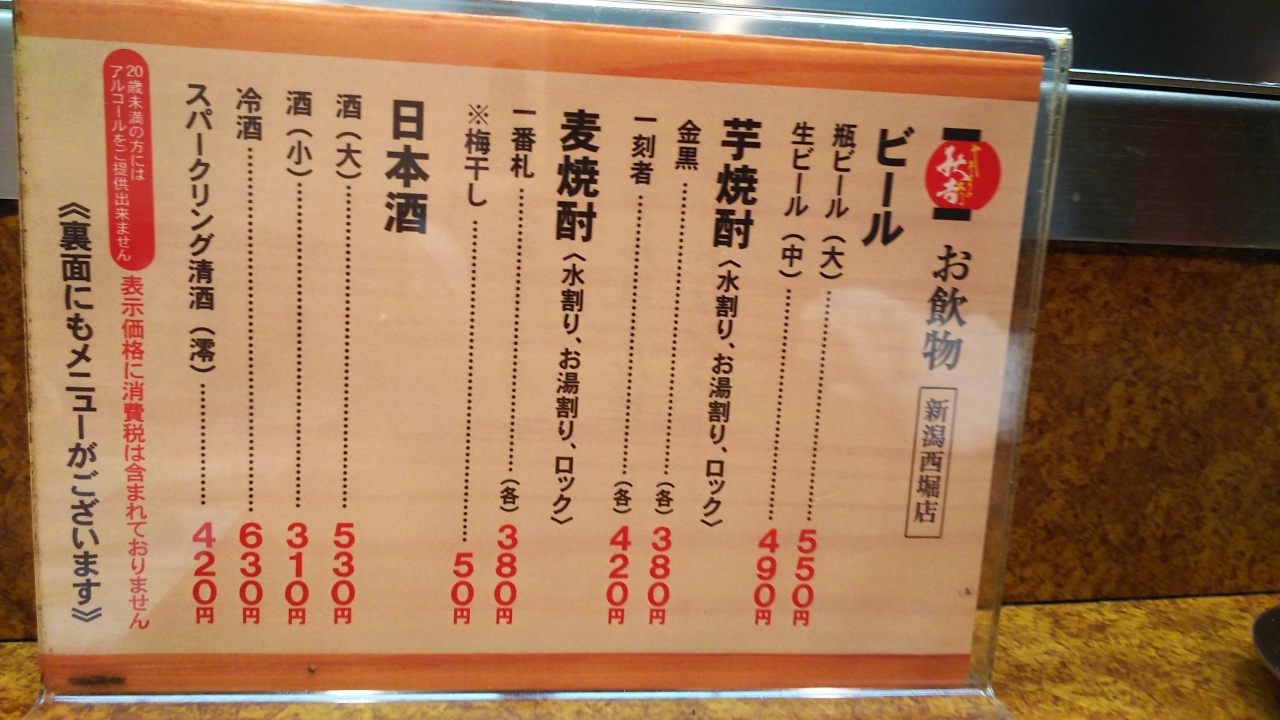 お飲物
新潟西堀店
ビール
瓶ビール（大）……550円
生ビール（中）……490円
芋焼酎〈水割り、お湯割り、ロック〉
金黒……（各）380円
一刻者……（各）420円
麦焼酎〈水割り、お湯割り、ロック〉
一番札……（各）380円
※梅干し……50円
日本酒
酒（大）……530円
酒（小）……310円
冷酒……630円
スパークリング清酒（澪）……420円
20歳未満の方には
アルコールをご提供出来ません
表示価格に消費税は含まれておりません
《裏面にもメニューがございます》